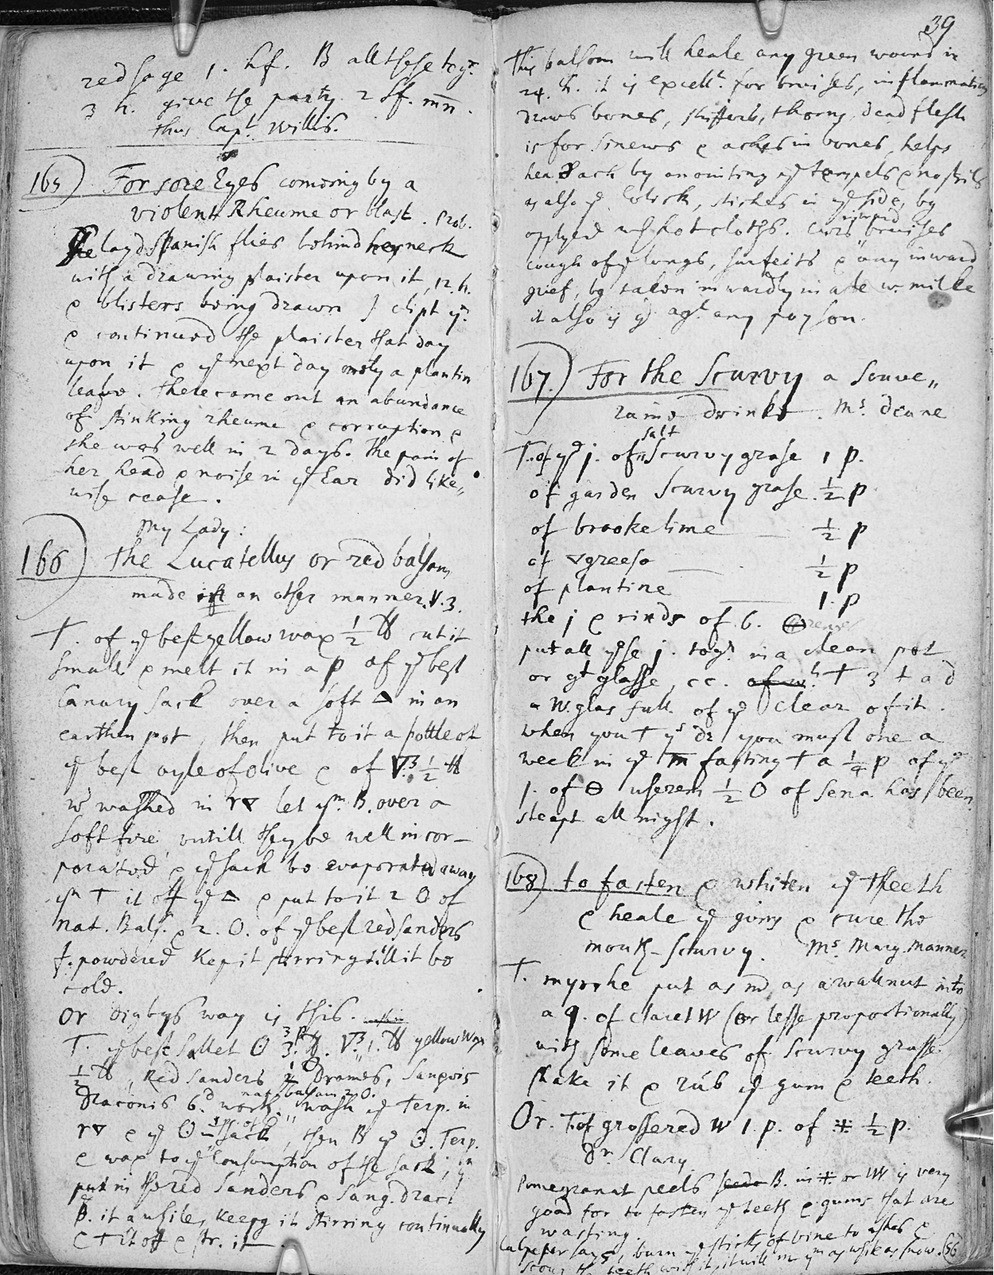 red sage 1. hf. B all these togr.
3 h. give the party 2 sp. mn.
thus Capt. Willis.
165) For sore Eyes comeing by a
violent Rheume or blast. Prob.
He layd Spanish flies behind her neck
with a drawing plaister upon it, 12. h.
& blisters being drawn I clipt ym.
& continued the plaister that day
upon it & ye next day only a plantin
leafe. there came out an abundance
of stinking rheume & corruption &
she was well in 2 days. the pain of
her head & noise in ye Ear did like,,
wise cease.
My Lady:
166) the Lucatellus or red balsam
made in an other manner. V. 3.
T. of ye best yellow wax ½ ℔ cut it
small & melt it in a p of ye best
Canary Sack over a soft △ in an
earthen pot, then put to it a pottle of
ye best oyle of olive & of ▽3 ½ ℔
wl washed in r▽ let ym B. over a
soft fire untill they be well incor-
porated & ye sack be evaporated away
yn T it off ye △ & put to it 2 O of
nat. Bals. & 2. O. of ye best red sanders
f. powdered keep it stirring till it be
cold.
Or Digbys way is this.
T. ye best sallet O 3. p. ▽3 1. ℔ yellow wax
½ ℔, Red Sanders 2 Drames, Sangvis
nat. balsam 2 O.
Draconis 6d. worth, wash ye Terp. in
r▽ & ye O in sack, then B ye O. Terp.
& wax to ye Consumption of the sack; yn
put in the red Sanders & Sang. drac.
B. it a while, keepg it stirring continually
& T it off & str. it
39
This balsam will heale any green wound in
24. h. it is excellt. for bruises, inflammations
draws bones, thorns, dead flesh
is for sinews & aches in bones, helps
headack by anointing ye tempels & nostrils
as also ye Colick, stiches in ye side, by
applyed wth hot cloths. Cures inward bruises
cough of ye lungs, surfeits & any inward
grief, by taken inwardly in ale or milke
it also is gd agt. any poyson.
167.) For the Scurvy a Souve,,
raine drinke. Ms. Deane
T. of ye j. of salt Scurvy grase 1 p.
of garden Scurvy grase. ½ p
of brooke lime ½ p
of ▽greese ½ p
of plantine 1. p
the j & rinds of 6.
put all yse j. togr. in a clean pot
or gt glasse, cc. T 3 t a d
a W. glas full of ye clear of it.
when you T ys dr. you must one a
week in ye m fasting T a ¼ p. of ye
j. of Ɵ wherein ½ O of sena has been
steapt all night.
168) to fasten & whiten ye theeth
& heale ye gums & cure the
mouth-Scurvy. Ms. Mary. Manners
T. myrrhe put as m. as a walnut into
a q. of claret W (or lesse proportionally)
with some leaves of Scurvy grasse.
Shake it & rub ye gum & teeth.
Or. T. of grossered W 1. p. of ⁜ ½ p.
Dr. Clary
Pomegranat peels B. in ⁜ or W is very
good for to fasten ye teeth & gums that are
wasting.
Culpeper says, burn ye sticks of vine to ashes &
scour the teeth with it, it will m ym as white as snow.